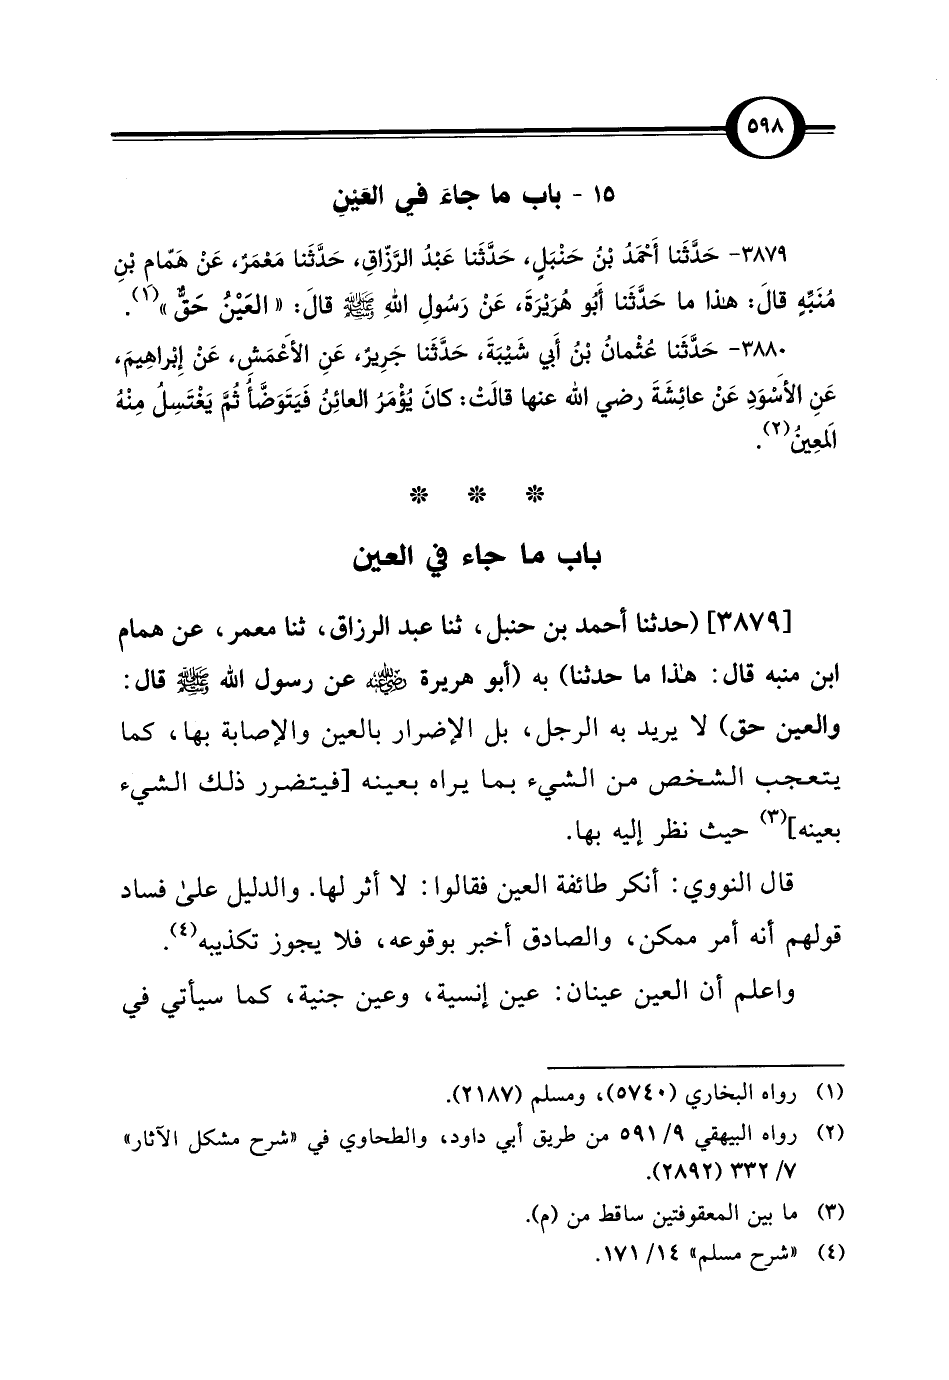 ٥٩٨
١٥ - باب ما جاءَ في العَيْنِ
٣٨٧٩- حَدَّثَنا أَحْمَدُ بْنُ حَنْبَلٍ، حَدَّثَنا عَبْدُ الرَّزّاقِ، حَدَّثَنا مَعْمَرٌ، عَنْ هَمّامِ بْنِ
مُنَبِّهٍ قالَ: هذا ما حَدَّثَنا أَبُو هُرَيْرَةَ، عَنْ رَسُولِ اللهِ ﷺ قالَ: « العَيْنُ حَقٌّ »(١).
٣٨٨٠- حَدَّثَنا عُثْمانُ بْنُ أَبي شَيْبَةَ، حَدَّثَنا جَرِيرٌ، عَنِ الأَعْمَشِ، عَنْ إِبْراهِيمَ،
عَنِ الأَسْوَدِ عَنْ عائِشَةَ رضي الله عنها قالَتْ: كانَ يُؤْمَرُ العائِنُ فَيَتَوَضَّأُ ثُمَّ يَغْتَسِلُ مِنْهُ
المَعِينُ(٢).
* * *
باب ما جاء في العين
[٣٨٧٩] (حدثنا أحمد بن حنبل، ثنا عبد الرزاق، ثنا معمر، عن همام
ابن منبه قال: هذا ما حدثنا) به (أبو هريرة رضي الله عنه عن رسول الله ﷺ قال:
والعين حق) لا يريد به الرجل، بل الإضرار بالعين والإصابة بها، كما
يتعجب الشخص من الشيء بما يراه بعينه [فيتضرر ذلك الشيء
بعينه](٣) حيث نظر إليه بها.
قال النووي: أنكر طائفة العين فقالوا: لا أثر لها. والدليل على فساد
قولهم أنه أمر ممكن، والصادق أخبر بوقوعه، فلا يجوز تكذيبه(٤).
واعلم أن العين عينان: عين إنسية، وعين جنية، كما سيأتي في
(١) رواه البخاري (٥٧٤٠)، ومسلم (٢١٨٧).
(٢) رواه البيهقي ٩/ ٥٩١ من طريق أبي داود، والطحاوي في «شرح مشكل الآثار»
٧/ ٣٣٢ (٢٨٩٢).
(٣) ما بين المعقوفتين ساقط من (م).
(٤) «شرح مسلم» ١٤/ ١٧١.